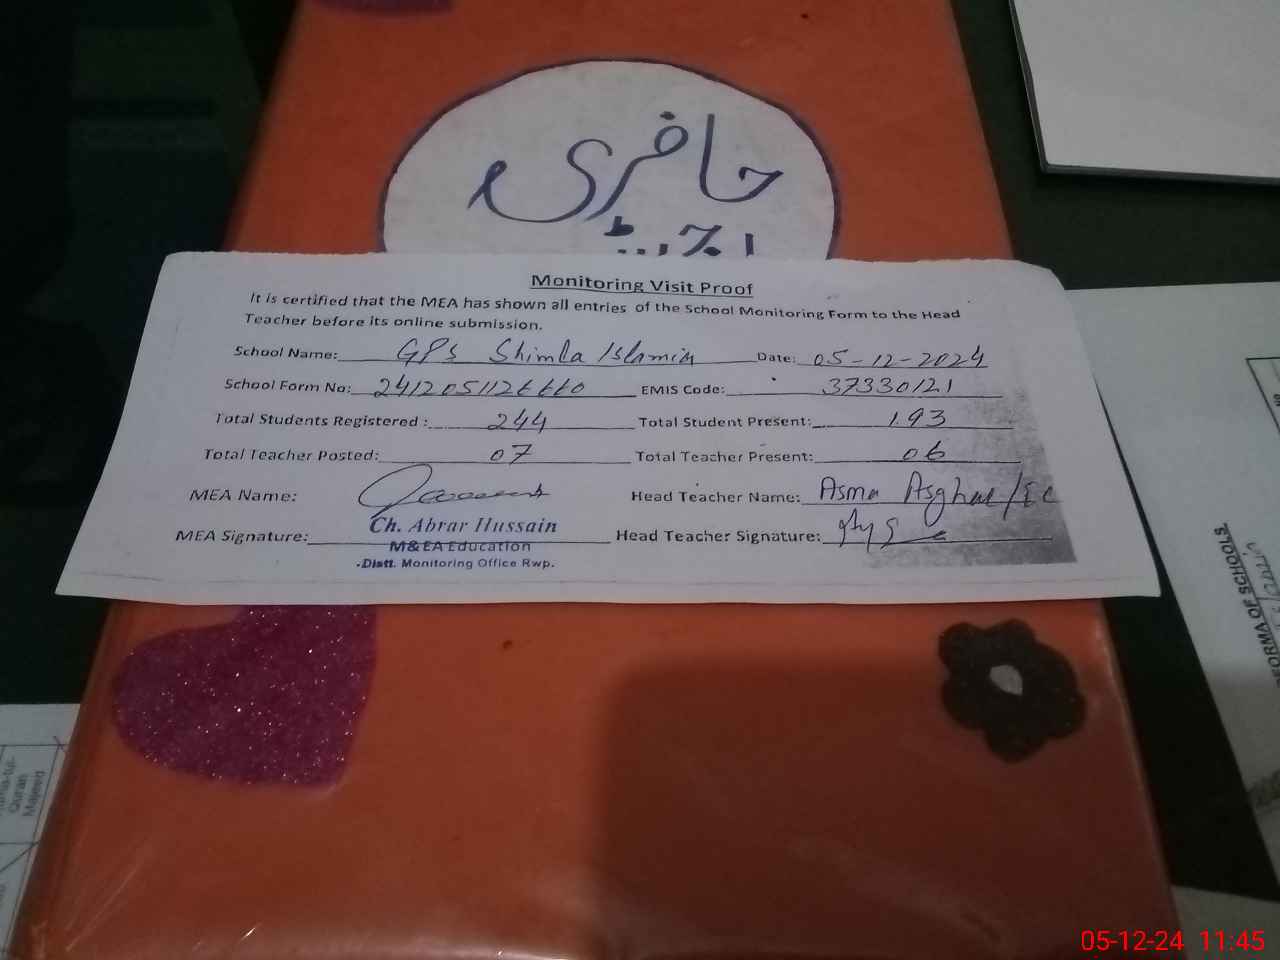 حاضری
Monitoring Visit Proof
It is certified that the MEA has shown all entries of the School Monitoring Form to the Head
Teacher before its online submission.
School Name: GPS Shimla Islamia Date: 05-12-2024
School Form No: 2412051126660 EMIS Code: 37330121
Total Students Registered : 244 Total Student Present: 193
Total Teacher Posted: 07 Total Teacher Present: 06
MEA Name: Head Teacher Name: Asma Asghar
Ch. Abrar Hussain
MEA Signature: Head Teacher Signature:
M&EA Education
Distt. Monitoring Office Rwp.
FORMA OF SCHOOLS
Quran
Majeed
05-12-24 11:45